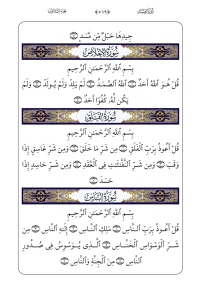 جِيدِهَا حَبْلٌ مِّن مَّسَدٍ ۝
سُورَةُ الإِخْلَاصِ
بِسْمِ ٱللَّهِ ٱلرَّحْمَٰنِ ٱلرَّحِيمِ
قُلْ هُوَ ٱللَّهُ أَحَدٌ ۝ ٱللَّهُ ٱلصَّمَدُ ۝ لَمْ يَلِدْ وَلَمْ يُولَدْ ۝ وَلَمْ
يَكُن لَّهُۥ كُفُوًا أَحَدٌۢ ۝
سُورَةُ الفَلَقِ
بِسْمِ ٱللَّهِ ٱلرَّحْمَٰنِ ٱلرَّحِيمِ
قُلْ أَعُوذُ بِرَبِّ ٱلْفَلَقِ ۝ مِن شَرِّ مَا خَلَقَ ۝ وَمِن شَرِّ غَاسِقٍ إِذَا
وَقَبَ ۝ وَمِن شَرِّ ٱلنَّفَّٰثَٰتِ فِى ٱلْعُقَدِ ۝ وَمِن شَرِّ حَاسِدٍ إِذَا
حَسَدَ ۝
سُورَةُ النَّاسِ
بِسْمِ ٱللَّهِ ٱلرَّحْمَٰنِ ٱلرَّحِيمِ
قُلْ أَعُوذُ بِرَبِّ ٱلنَّاسِ ۝ مَلِكِ ٱلنَّاسِ ۝ إِلَٰهِ ٱلنَّاسِ ۝ مِن
شَرِّ ٱلْوَسْوَاسِ ٱلْخَنَّاسِ ۝ ٱلَّذِى يُوَسْوِسُ فِى صُدُورِ
ٱلنَّاسِ ۝ مِنَ ٱلْجِنَّةِ وَٱلنَّاسِ ۝